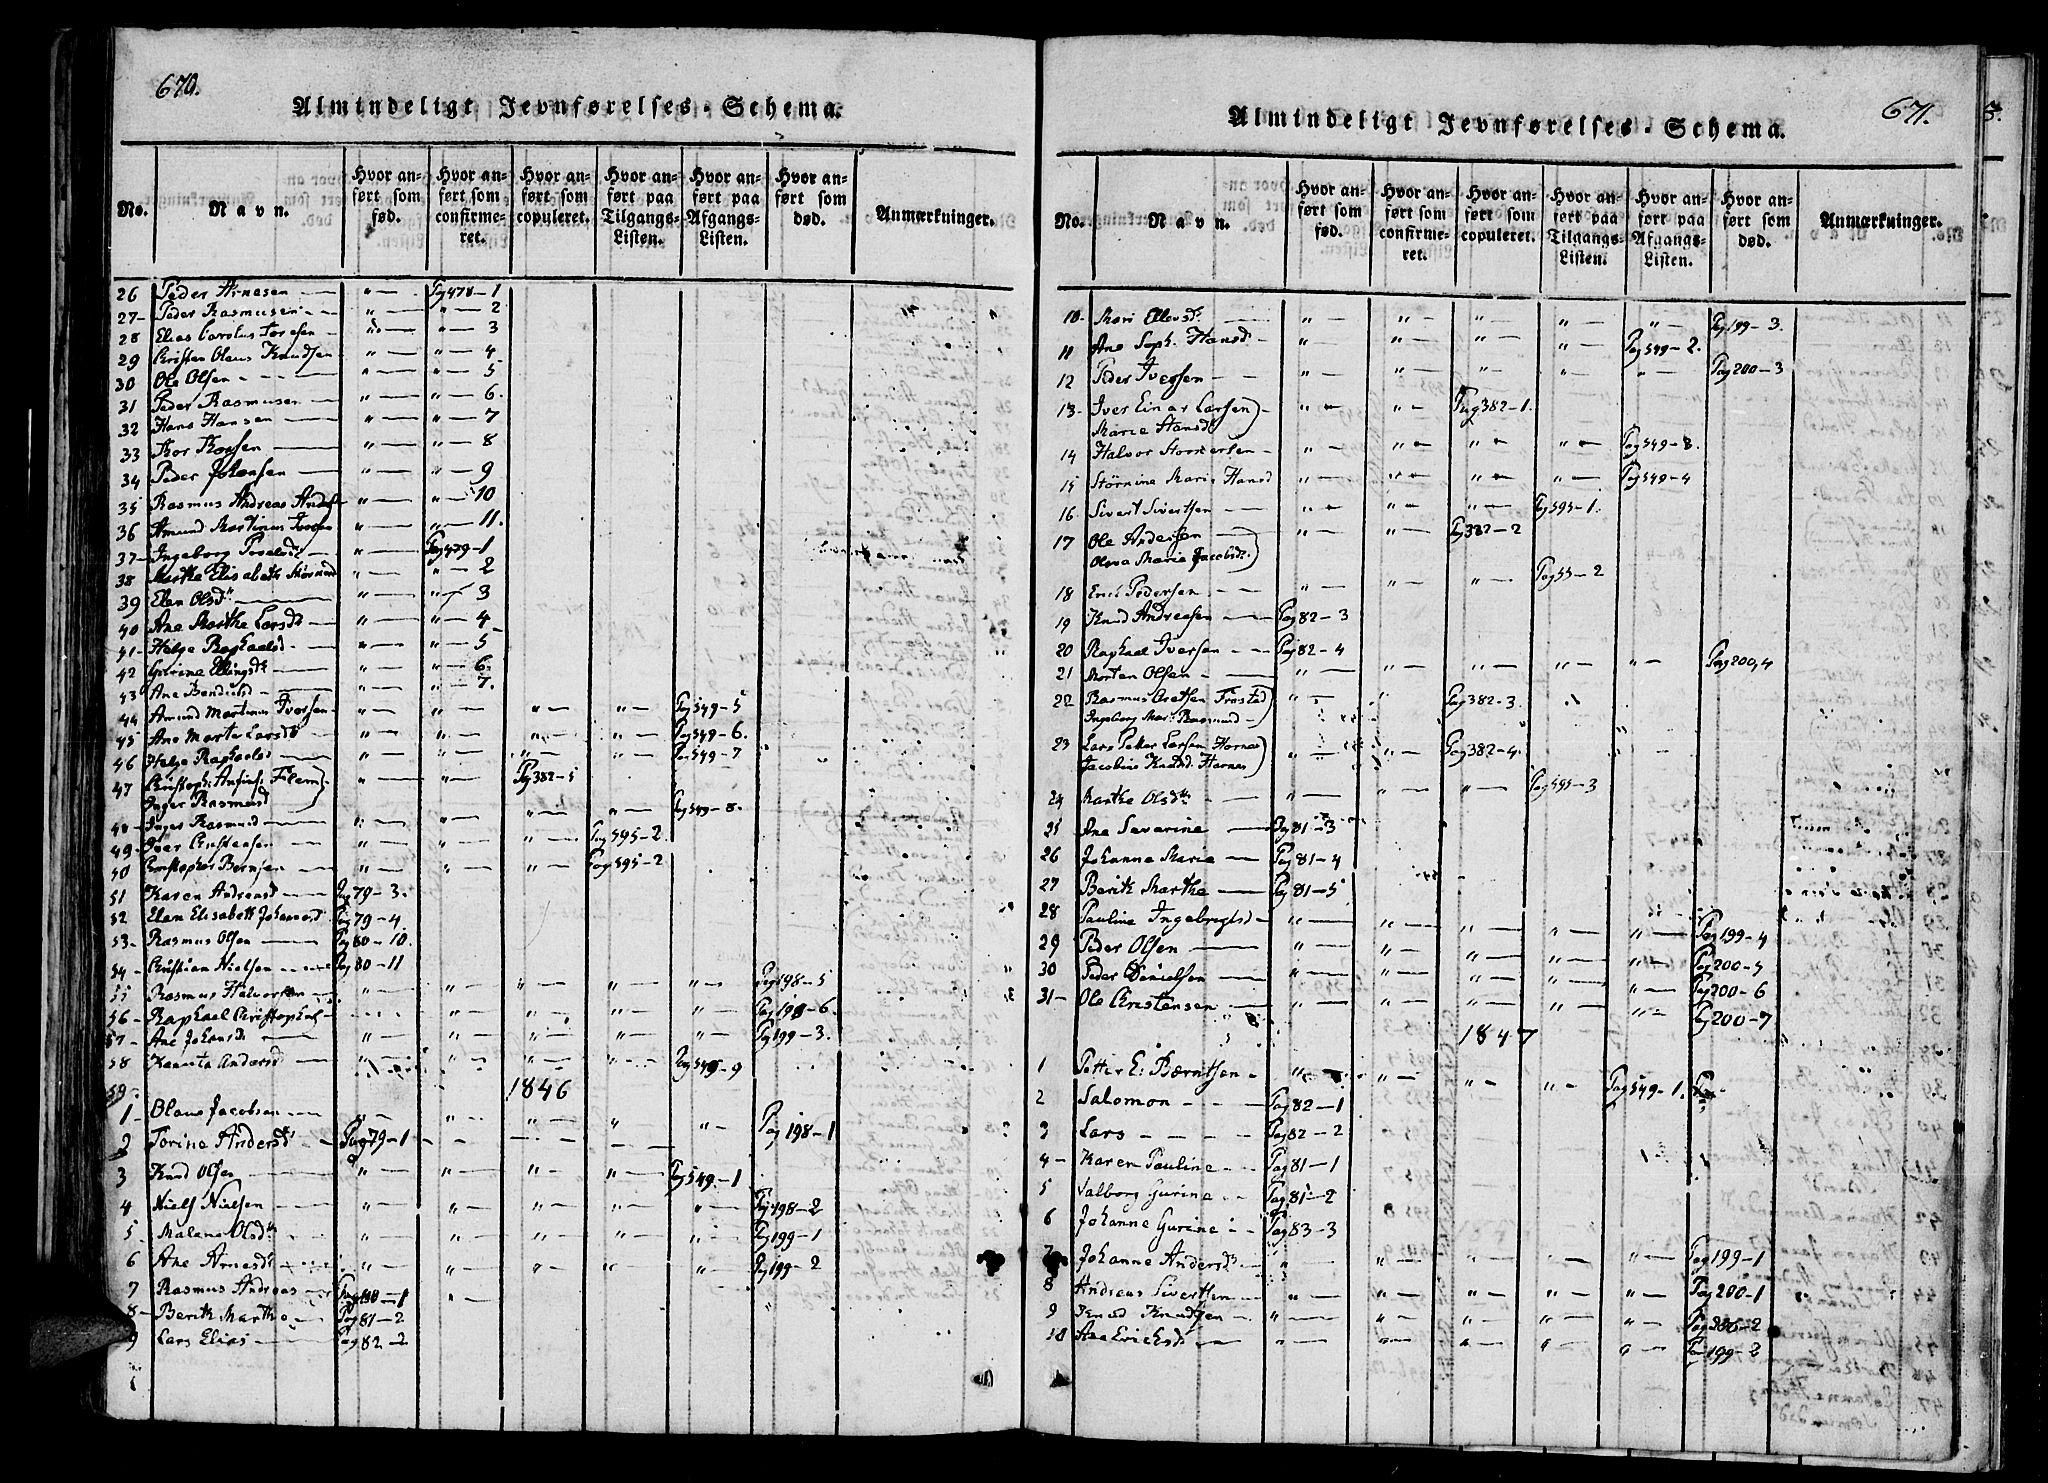 670.
Almindeligt Jevnførelses-Schema.
No. Navn. Hvor anført som fød. Hvor anført som confirmeret. Hvor anført som copuleret. Hvor anført paa Tilgangs-Listen. Hvor anført paa Afgangs-Listen. Hvor anført som død. Anmærkninger.
26 Peder Arnesen — " — Pag 478-1
27- Peder Rasmusen — " — " — 2
28 Elias Carolus Toresen — " — " — 3
29 Christen Olaus Knudsen " — " — 4
30 Ole Olsen — " — " — 5
31 Peder Rasmusen — " — " — 6.
32 Hans Hansen — " — " — 7
33 Thor Thorsen — " — " — 8
34 Peder Johansen — " — " — 9
35 Rasmus Andreas " — " — 10
36 Amund Martinus Iversen " — " — 11.
37- Ingeborg " — Pag 479-1
38 Marthe Elisabeth " — " — 2
39 Elen Olsdt — " — " — 3
40 Ane Marthe Larsdt " — " — 4
41- Helge Raphaelsd — " — " — 5
42 Gurine Ellingsdt " — " — 6.
43 Ane — " — " — 7.
44 Amund Martinus Iversen " — " — " — " — Pag 549-5
45 Ane Marte Larsdt " — " — " — " — Pag 549-6.
46 Helge Raphaelsd " — " — " — " — Pag 549-7
47 Flem) " — " — Pag 382-5
Inger Rasmusd
48- Inger Rasmusd — " — " — " — " — Pag 549-8.
49- Iver Christensen " — " — " — Pag 595-2.
50 Christopher " — " — " — Pag 595-2
51 Karen Andreasd — Pag 79-3.
52 Elen Elisabeth Johannesd Pag 79-4.
53- Rasmus Olsen — Pag 80-10.
54- Christian Nielsen — Pag 80-11
55 Rasmus Halvorsen " — " — " — " — " — Pag 198-5
56- Raphael " — " — " — " — Pag 198-6.
57- Ane Johansdt — " — " — " — " — " — Pag 199-3.
58 Andersd " — " — " — " — Pag 549-9
59. 1846
1- Olaus Jacobsen — " — " — " — " — " — Pag 198-1
2 Torine Andersdt — Pag 79-1
3 Knud Olsen — " — " — " — " — Pag 549-1
4 Niels Nielsen — " — " — " — " — " — Pag 198-2
5 Malene Olsdt " — " — " — " — " — Pag 199-1
6 Ane Arnesdt — " — " — " — " — Pag 199-2
7 Rasmus Andreas — Pag 80-1 " —
8- Berith Marthe Pag 81-2
9 Lars Elias — Pag 82-2
671.
Almindeligt Jevnførelses-Schema.
No. Navn. Hvor anført som fød. Hvor anført som confirmeret. Hvor anført som copuleret. Hvor anført paa Tilgangs-Listen. Hvor anført paa Afgangs-Listen. Hvor anført som død. Anmærkninger.
10- Mari Ellevsdt — " — " — " — " — " — Pag 199-3.
11 Ane Soph. Hansd — " — " — " — " — Pag 549-2.
12 Peder Iversen — " — " — " — " — " — Pag 200-3
13- Iver Einar Larsen) — " — " — Pag 382-1.
Marie Hansdt
14 Halvor — " — " — " — " — Pag 549-3.
15 Marie Hansd " — " — " — " — Pag 549-4
16 Sivert Sivertsen — " — " — " — Pag 595-1.
17 Ole Andersen — " — " — Pag 382-2
Marie Jacobsdt.)
18 Erik Pedersen — " — " — Pag 55-2
19 Knud Andreasen — Pag 82-3
20 Raphael Iversen — Pag 82-4
21 Morten Olsen — " — " — " — " — " — Pag 200,4
22 Rasmus Frostad) " — " — Pag 382-3.
Ingeborg Mar. Rasmusd —
23 Lars Petter Larsen Harnes) " — " — Pag 382-4.
Jacobine Knutsd. Harnes
24 Marthe Olsdt — " — " — " — Pag 595-3
25 Ane Severine — Pag 81-3
26 Johanne Marie — Pag 81-4
27 Berith Marthe — Pag 81-5
28 Pauline Ingebregtsd — " — " — " — " — " — Pag 199-4
29 Peder Olsen — " — " — " — " — " — Pag 200-5
30 Peder Danielsen — " — " — " — " — " — Pag 200-6
31- Ole Christensen — " — " — " — " — " — Pag 200-7
1847
1 Petter E: Bærntsen — " — " — " — " — Pag 549-1.
2 Salomon — Pag 82-1
3 Lars — Pag 82-2
4- Karen Pauline — Pag 81-1
5 Valborg Gurine — Pag 81-2
6 Johanne Gurine — Pag 83-3
7 Johanne Andersdt — " — " — " — " — " — Pag 199-1
8 Andreas Sivertsen — " — " — " — " — " — Pag 200-1
9 Knud Knudsen — " — " — " — " — " — Pag -2
10 Ane Ericksdt — " — " — " — " — " — Pag 199-2